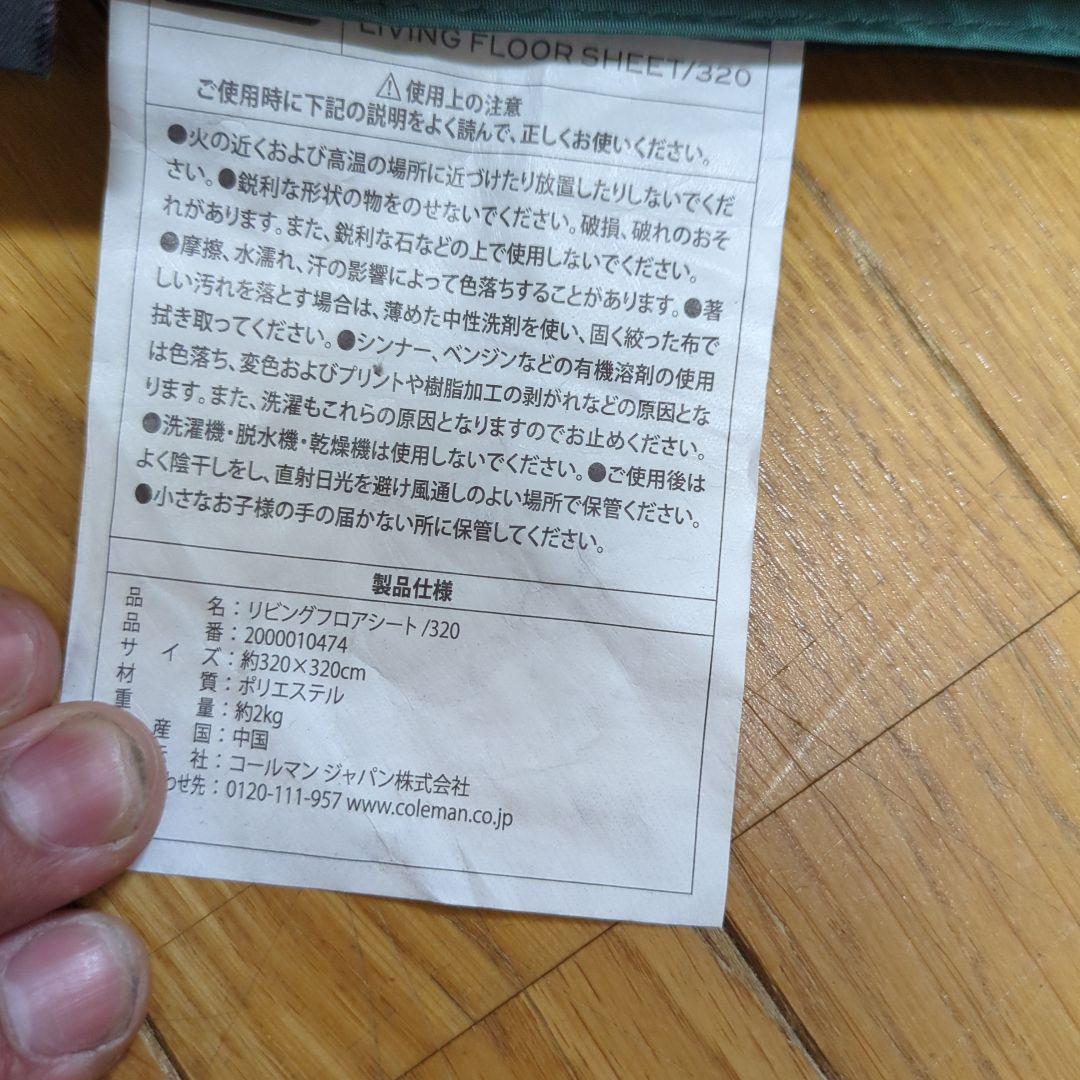 LIVING FLOOR SHEET/320
使用上の注意
ご使用時に下記の説明をよく読んで、正しくお使いください。
●火の近くおよび高温の場所に近づけたり放置したりしないでくだ
さい。●鋭利な形状の物をのせないでください。破損、破れのおそ
れがあります。また、鋭利な石などの上で使用しないでください。
●摩擦、水濡れ、汗の影響によって色落ちすることがあります。●著
しい汚れを落とす場合は、薄めた中性洗剤を使い、固く絞った布で
拭き取ってください。●シンナー、ベンジンなどの有機溶剤の使用
は色落ち、変色およびプリントや樹脂加工の剥がれなどの原因とな
ります。また、洗濯もこれらの原因となりますのでお止めください。
●洗濯機・脱水機・乾燥機は使用しないでください。●ご使用後は
よく陰干しをし、直射日光を避け風通しのよい場所で保管ください。
●小さなお子様の手の届かない所に保管してください。
製品仕様
品名：リビングフロアシート/320
品番：2000010474
サイズ：約320×320cm
材質：ポリエステル
重量：約2kg
産国：中国
社：コールマン ジャパン株式会社
わせ先：0120-111-957 www.coleman.co.jp